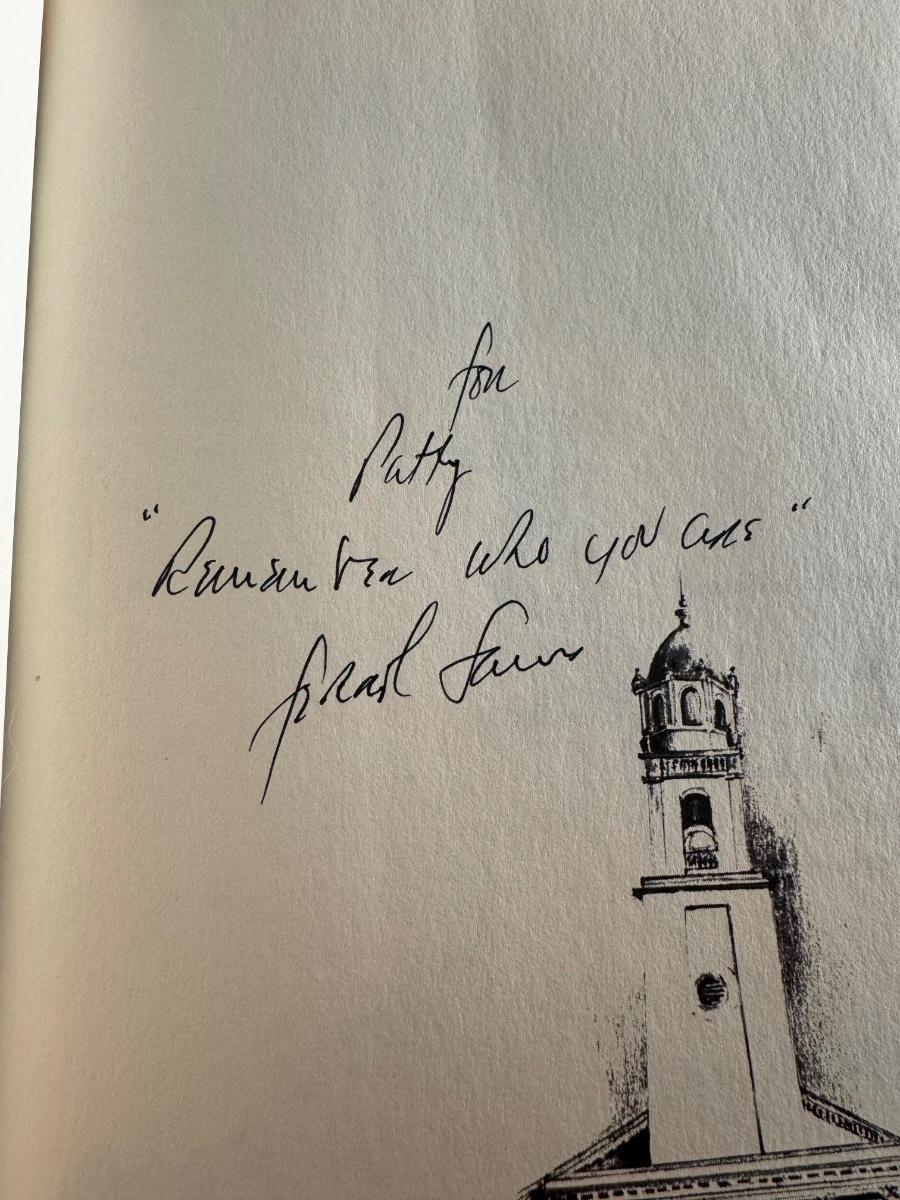 for
Patty
"Remember who you are"